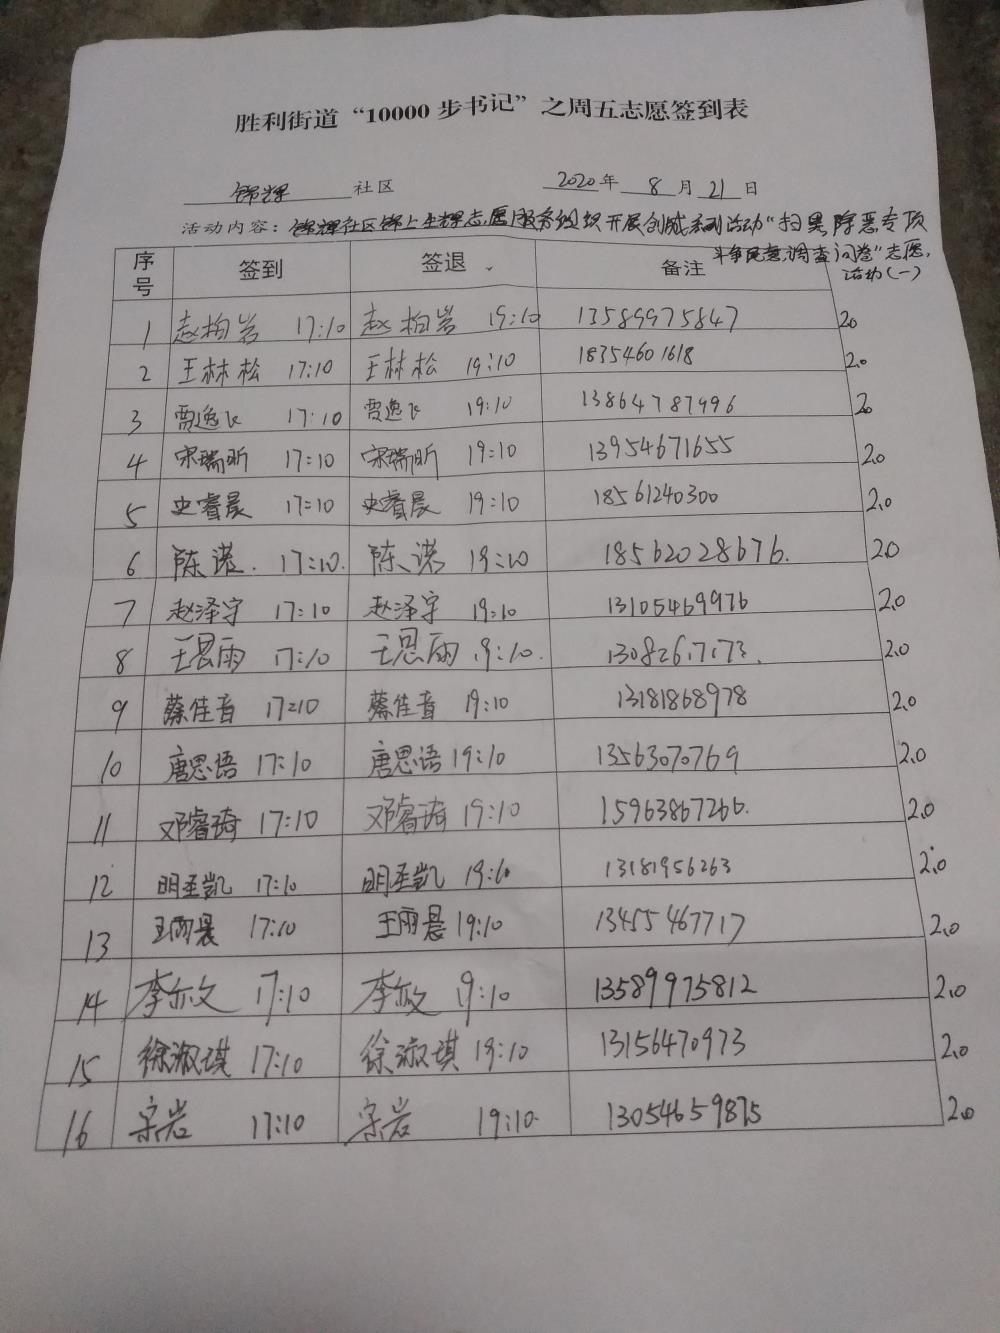 胜利街道“10000步书记”之周五志愿签到表
锦辉 社区 2020年 8月 21日
活动内容：锦辉社区锦上生辉志愿服务组织开展创城系列活动“扫黑除恶专项
斗争民意调查问卷”志愿
活动(一)
序号 签到 签退 备注
1 赵柏岩 17:10 赵柏岩 19:10 13589975847 20
2 王林松 17:10 王林松 19:10 18354601618 2.0
3 贾逸飞 17:10 贾逸飞 19:10 13864787996 20
4 宋瑞昕 17:10 宋瑞昕 19:10 13954671655 2.0
5 史睿晨 17:10 史睿晨 19:10 18561240300 2.0
6 陈诺. 17:10. 陈诺 19:10 18562028676. 20
7 赵泽宇 17:10 赵泽宇 19:10 13105469976 2.0
8 王思雨 17:10 王思雨 19:10. 2.0
9 蔡佳音 17:10 蔡佳音 19:10 13181868978 2.0
10 唐思语 17:10 唐思语 19:10 13563070769 2.0
11 邓睿琦 17:10 邓睿琦 19:10 15963867266. 2.0
12 明圣凯 17:10 明圣凯 19:10 13181956263 2.0
13 王雨晨 17:10 王雨晨 19:10 13455467717 2.0
14 李亦文 17:10 李亦文 19:10 13589975812 2.0
15 徐淑琪 17:10 徐淑琪 19:10 13156470973 2.0
16 宗岩 17:10 宗岩 19:10 13054659875 20